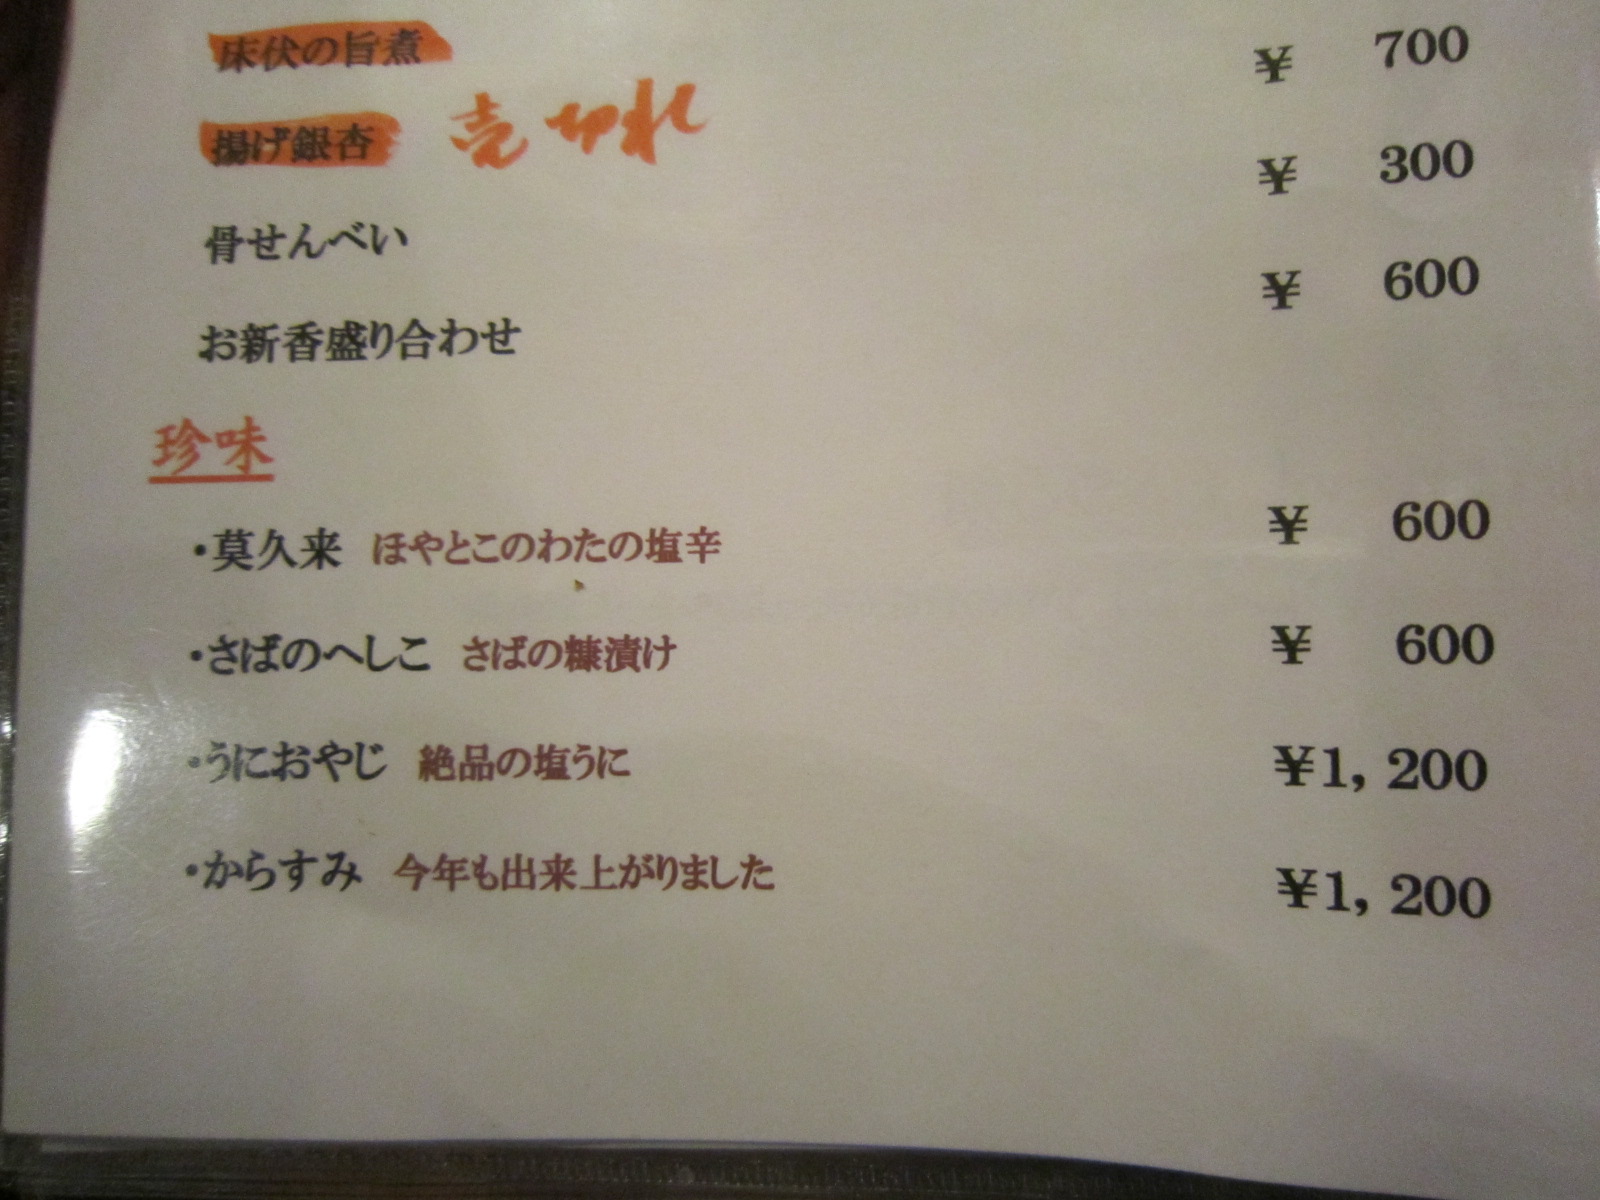 床伏の旨煮 ¥ 700
揚げ銀杏 売切れ ¥ 300
骨せんべい ¥ 600
お新香盛り合わせ
珍味
・莫久来 ほやとこのわたの塩辛 ¥ 600
・さばのへしこ さばの糠漬け ¥ 600
・うにおやじ 絶品の塩うに ¥1,200
・からすみ 今年も出来上がりました ¥1,200